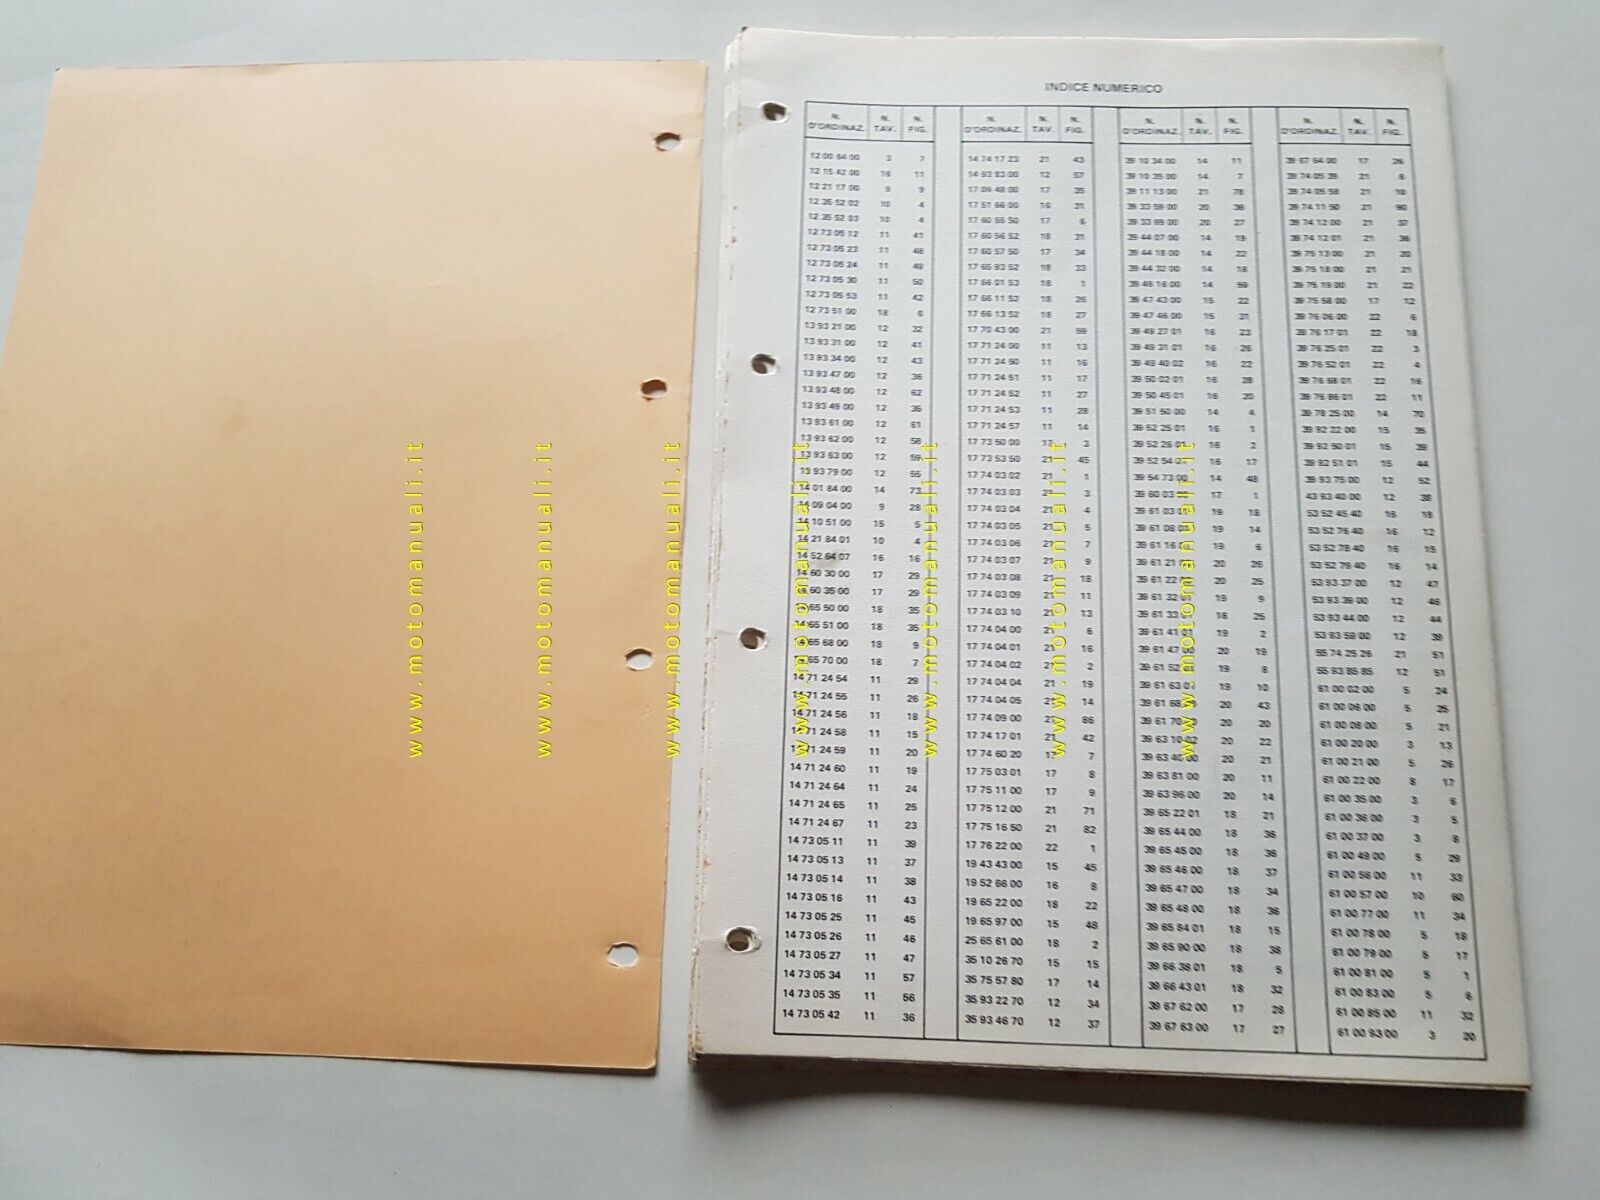 INDICE NUMERICO
N. D'ORDINAZ. N. TAV. N. FIG.
12 00 64 00 3 7
12 15 42 00 16 11
12 21 17 00 9 9
12 35 52 02 10 4
12 35 52 03 10 4
12 73 05 12 11 41
12 73 05 23 11 48
12 73 05 24 11 49
12 73 05 30 11 50
12 73 05 53 11 42
12 73 51 00 18 6
13 93 21 00 12 32
13 93 31 00 12 41
13 93 34 00 12 43
13 93 47 00 12 36
13 93 48 00 12 62
13 93 49 00 12 35
13 93 61 00 12 61
13 93 62 00 12 58
13 93 63 00 12 59
13 93 79 00 12 55
14 01 84 00 14 73
14 09 04 00 9 28
14 10 51 00 15 5
14 21 84 01 10 4
14 52 64 07 16 16
14 60 30 00 17 29
14 60 35 00 17 29
14 65 50 00 18 35
14 65 51 00 18 35
14 65 68 00 18 9
14 65 70 00 18 7
14 71 24 54 11 29
14 71 24 55 11 26
14 71 24 56 11 18
14 71 24 58 11 15
14 71 24 59 11 20
14 71 24 60 11 19
14 71 24 64 11 24
14 71 24 65 11 25
14 71 24 67 11 23
14 73 05 11 11 39
14 73 05 13 11 37
14 73 05 14 11 38
14 73 05 16 11 43
14 73 05 25 11 45
14 73 05 26 11 46
14 73 05 27 11 47
14 73 05 34 11 57
14 73 05 35 11 56
14 73 05 42 11 36
N. D'ORDINAZ. N. TAV. N. FIG.
14 74 17 23 21 43
14 93 83 00 12 57
17 09 48 00 17 25
17 51 66 00 16 21
17 60 55 50 17 6
17 60 56 52 18 31
17 60 57 50 17 34
17 65 93 52 18 33
17 66 01 53 18 1
17 66 11 52 18 26
17 66 13 52 18 27
17 70 43 00 21 59
17 71 24 00 11 13
17 71 24 50 11 16
17 71 24 51 11 17
17 71 24 52 11 27
17 71 24 53 11 28
17 71 24 57 11 14
17 73 50 00 17 3
17 73 53 50 21 45
17 74 03 02 21 1
17 74 03 03 21 3
17 74 03 04 21 4
17 74 03 05 21 5
17 74 03 06 21 7
17 74 03 07 21 9
17 74 03 08 21 18
17 74 03 09 21 11
17 74 03 10 21 13
17 74 04 00 21 6
17 74 04 01 21 16
17 74 04 02 21 2
17 74 04 04 21 19
17 74 04 05 21 14
17 74 09 00 21 86
17 74 17 01 21 42
17 74 60 20 17 7
17 75 03 01 17 8
17 75 11 00 17 9
17 75 12 00 21 71
17 75 16 50 21 82
17 76 22 00 22 1
19 43 43 00 15 45
19 52 66 00 16 8
19 65 22 00 18 22
19 65 97 00 15 48
25 65 61 00 18 2
35 10 26 70 15 15
35 75 57 80 17 14
35 93 22 70 12 34
35 93 46 70 12 37
N. D'ORDINAZ. N. TAV. N. FIG.
39 10 34 00 14 11
39 10 35 00 14 7
39 11 13 00 21 78
39 33 59 00 20 36
39 33 69 00 20 27
39 44 07 00 14 19
39 44 18 00 14 22
39 44 32 00 14 18
39 46 16 00 14 59
39 47 43 00 15 22
39 47 46 00 15 21
39 49 27 01 16 23
39 49 31 01 16 26
39 49 40 02 16 22
39 50 02 01 16 28
39 50 45 01 16 20
39 51 50 00 14 4
39 52 25 01 16 1
39 52 26 01 16 2
39 52 54 01 16 17
39 54 73 00 14 48
39 60 03 00 17 1
39 61 03 01 19 18
39 61 08 01 19 14
39 61 16 19 6
39 61 21 20 26
39 61 22 20 25
39 61 32 01 19 9
39 61 33 18 25
39 61 41 01 19 2
39 61 47 00 20 19
39 61 52 01 19 8
39 61 63 19 10
39 61 68 20 43
39 61 70 20 20
39 63 10 02 20 22
39 63 40 00 20 21
39 63 81 00 20 11
39 63 96 00 20 14
39 65 22 01 18 21
39 65 44 00 18 36
39 65 45 00 18 36
39 65 46 00 18 37
39 65 47 00 18 34
39 65 48 00 18 36
39 65 84 01 18 15
39 65 90 00 18 38
39 66 38 01 18 5
39 66 43 01 18 32
39 67 62 00 17 28
39 67 63 00 17 27
N. D'ORDINAZ. N. TAV. N. FIG.
39 67 64 00 17 26
39 74 05 39 21 8
39 74 05 58 21 10
39 74 11 50 21 90
39 74 12 00 21 37
39 74 12 01 21 36
39 75 13 00 21 20
39 75 18 00 21 21
39 75 19 00 21 22
39 75 58 00 17 12
39 76 06 00 22 6
39 76 17 01 22 18
39 76 25 01 22 3
39 76 52 01 22 4
39 76 68 01 22 16
39 76 86 01 22 11
39 78 25 00 14 70
39 92 22 00 15 35
39 92 50 01 15 39
39 92 51 01 15 44
39 93 75 00 12 52
43 93 40 00 12 38
53 52 45 40 16 18
53 52 76 40 16 12
53 52 78 40 16 15
53 52 79 40 16 14
53 93 37 00 12 47
53 93 39 00 12 46
53 93 44 00 12 44
53 93 59 00 12 39
55 74 25 26 21 51
55 93 85 85 12 51
61 00 02 00 5 24
61 00 06 00 5 25
61 00 08 00 5 21
61 00 20 00 3 13
61 00 21 00 5 26
61 00 22 00 8 17
61 00 35 00 3 6
61 00 36 00 3 5
61 00 37 00 3 8
61 00 49 00 5 29
61 00 56 00 11 33
61 00 57 00 10 60
61 00 77 00 11 34
61 00 78 00 5 18
61 00 79 00 5 17
61 00 81 00 5 1
61 00 83 00 5 6
61 00 85 00 11 32
61 00 93 00 3 20
www.motomanuali.it
www.motomanuali.it
www.motomanuali.it
www.motomanuali.it
www.motomanuali.it
www.motomanuali.it
www.motomanuali.it